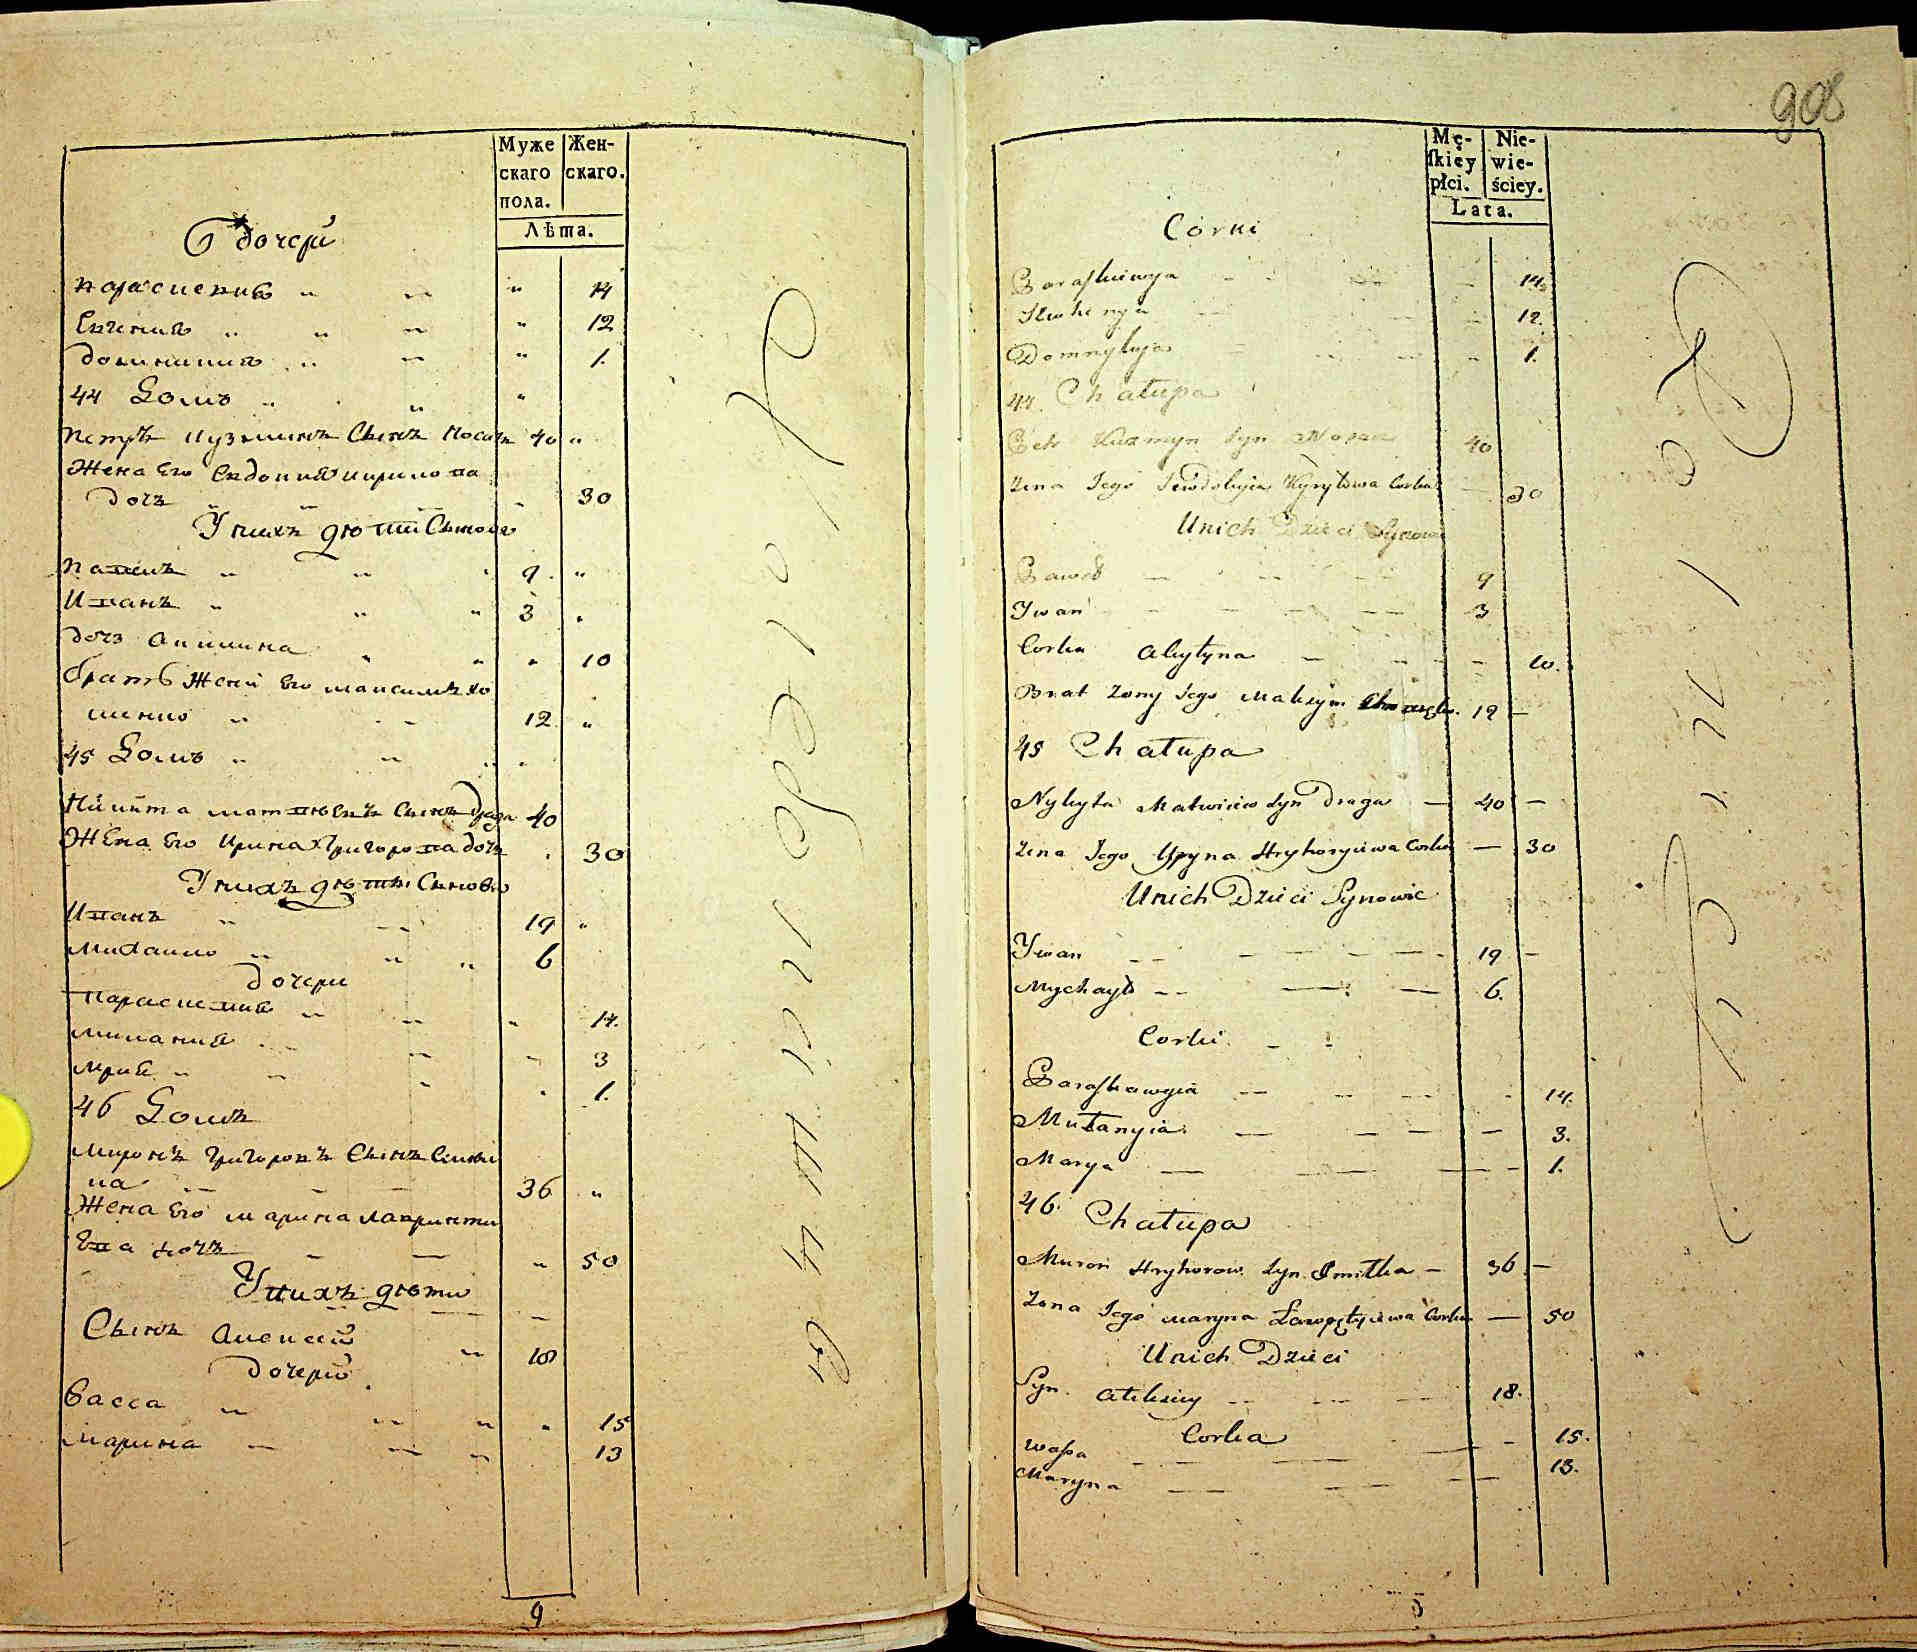 Муже
скаго
пола.
Жен-
скаго.
Лѣта.
дочери
параскевия " " " 14
Евгения " " " 12
домникия " " " 1.
44 Домъ " " "
Петръ Кузминъ Сынъ Носачъ 40 "
Жена Его Евдокия Кирилова
дочь " 30
У нихъ дѣти Сынове
Павелъ " " 9. "
Иванъ " " " 3 "
дочь Акилина " " " 10
братъ Жени Его Максимъ
12 "
45 Домъ " " "
Никита Матвѣевъ Сынъ Драга 40
Жена Его Ирина Григорова дочь 30
У нихъ дѣти Сынове
Иванъ " 19 "
Михаило " " " 6
дочери
Параскевия " " " 14.
Милания " " 3
Мрия " " " 1.
46 Домъ
Миронъ Григоровъ Сынъ
ка 36 "
Жена Его Марина Лавринти
Ева дочь " 50
У нихъ дѣти
Сынъ Алексей " 18
дочери
Васса " " " " 15
Марина " " 13
9
908
Mę-
ſkiey
płci.
Nie-
wie-
ściey.
Lata.
Corki
Paraſkiewya 14.
12.
Domnykija 1.
44. Chałupa
Petr Kuzmyn Syn Nosacz 40
Zona Jego Jewdokyia Kyryłowa Corka 30
Unich Dzieci Synowie
Paweł 9
Jwan 3
Corka Akyłyna 10.
Brat Zony Jego Maksym 12
45 Chałupa
Nykyta Matwiew Syn Draga 40
Zona Jego Yryna Hryhoryiewa Corka 30
Unich Dzieci Synowie
Jwan 19
Mychayło 6.
Corki
Paraſkawyia 14.
Mułanyia 3.
Marya 1.
46. Chałupa
Muron Hryhorow Syn Smitka 36
Zona Jego Maryna Corka 50
Unich Dzieci
Syn Aleksiey 18.
Corka
Waſsa 15.
Maryna 13.